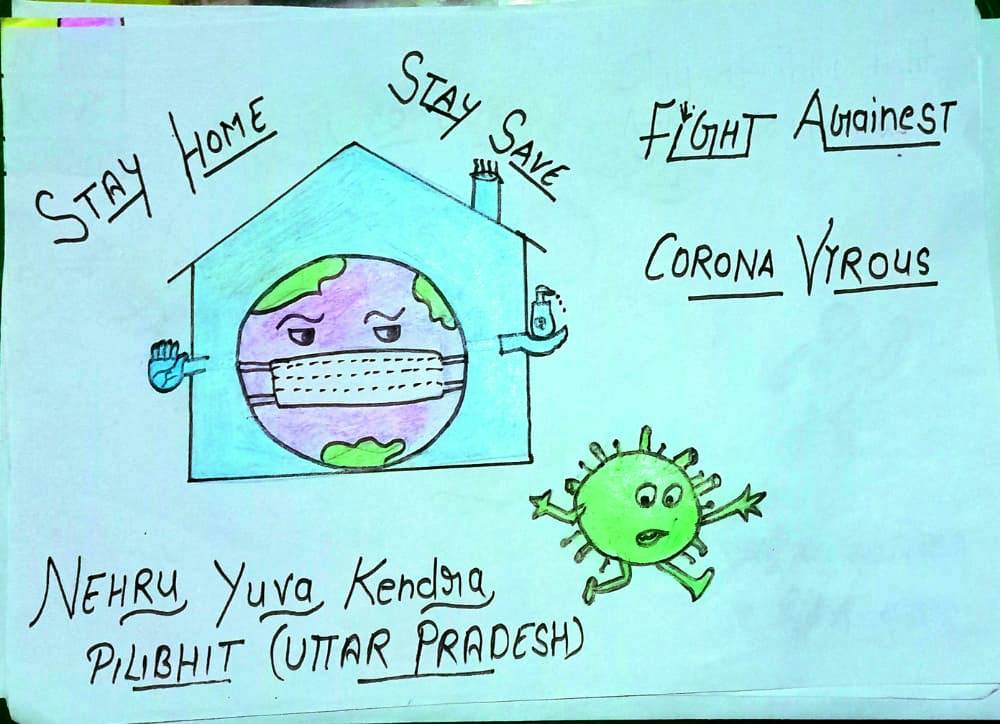 STAY HOME
STAY SAVE
FIGHT AGainEST
CORONA VYROUS
NEHRU Yuva Kendra
PILIBHIT (UTTAR PRADESH)